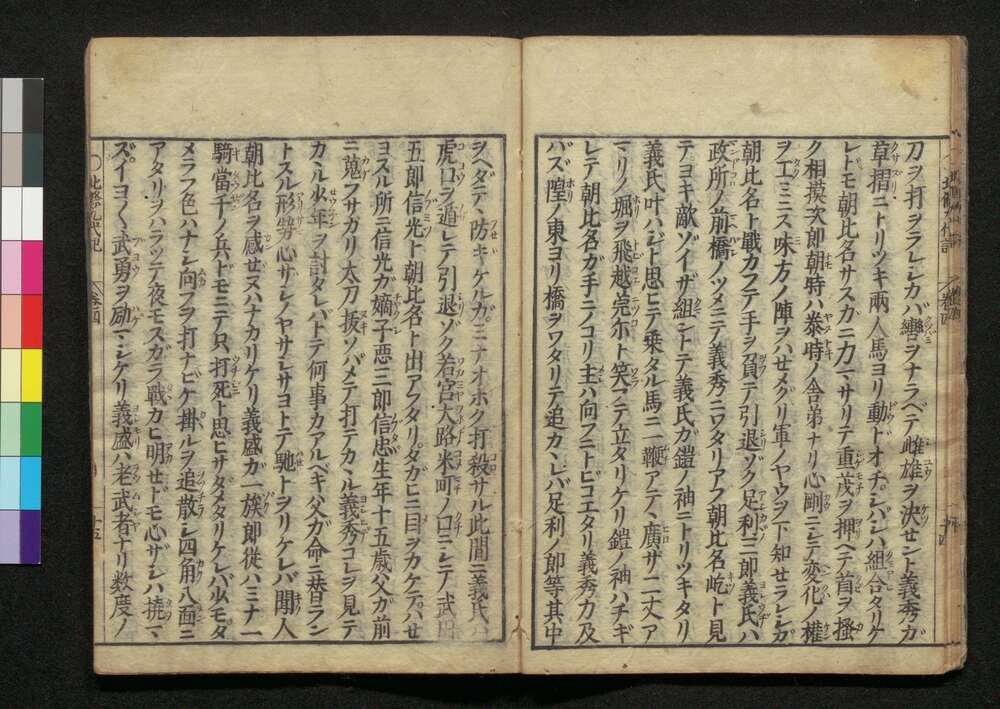 刀ヲ打ヲラレシカバ轡ヲナラベテ雌雄ヲ決セント義秀ガ
草摺ニトリツキ兩人馬ヨリ動トオチシバシハ組合タリケ
レトモ朝比名サスガニ力マサリテ重茂ヲ押ヘテ首ヲ搔
ク相摸次郎朝時ハ泰時ノ舎弟ナリ心剛ニシテ変化ノ權
ヲ工ミス味方ノ陣ヲハセメグリ軍ノヤウヲ下知セラレシガ
朝比名ト戰カフテ手ヲ負テ引退ゾク足利三郎義氏ハ
政所ノ前橋ノツメニテ義秀ニワタリアフ朝比名屹ト見
テヨキ敵ゾイザ組ントテ義氏ガ鎧ノ袖ニトリツキタリ
義氏叶ハジト思ヒテ乗タル馬ニ鞭アテ、廣サ二丈ア
マリノ堀ヲ飛越莞尓ト笑ノテ立タリケリ鎧ノ袖ハチギ
レテ朝比名ガ手ニノコリ主ハ向フニトビコエタリ義秀力及
バズ隍ノ東ヨリ橋ヲワタリテ追カ、レバ足利ノ郎等其中
ヲヘダテ、防キケルガミナオホク打殺サル此間ニ義氏ハ
虎口ヲ遁レテ引退ゾク若宮大路米町ノ口ニシテ武田
五郎信光ト朝比名ト出アフタリタガヒニ目ヲカケテハセ
ヨスル所ニ信光ガ嫡子悪三郎信忠生年十五歳父ガ前
ニ蒐フサガリ太刀拔ソバメテ打テカ、ル義秀コレヲ見テ
カ、ル少年ヲ討タレバトテ何事カアルベキ父ガ命ニ替ラン
トスル形勢心ザシノヤサシサヨトテ馳トヲリケレバ聞人
朝比名ヲ感セヌハナカリケリ義盛ガ一族郎從ハミナ一
騎當千ノ兵ドモニテ只打死ト思ヒサダメタリケレバ少モタ
メラフ色ハナシ向フヲ打ナビケ掛ルヲ追散シ四角八面ニ
アタリヲハラッテ夜モスガラ戰カヒ明セドモ心ザシハ撓マ、
ズイヨ〱武勇ヲ励マシケリ義盛ハ老武者ナリ数度ノ